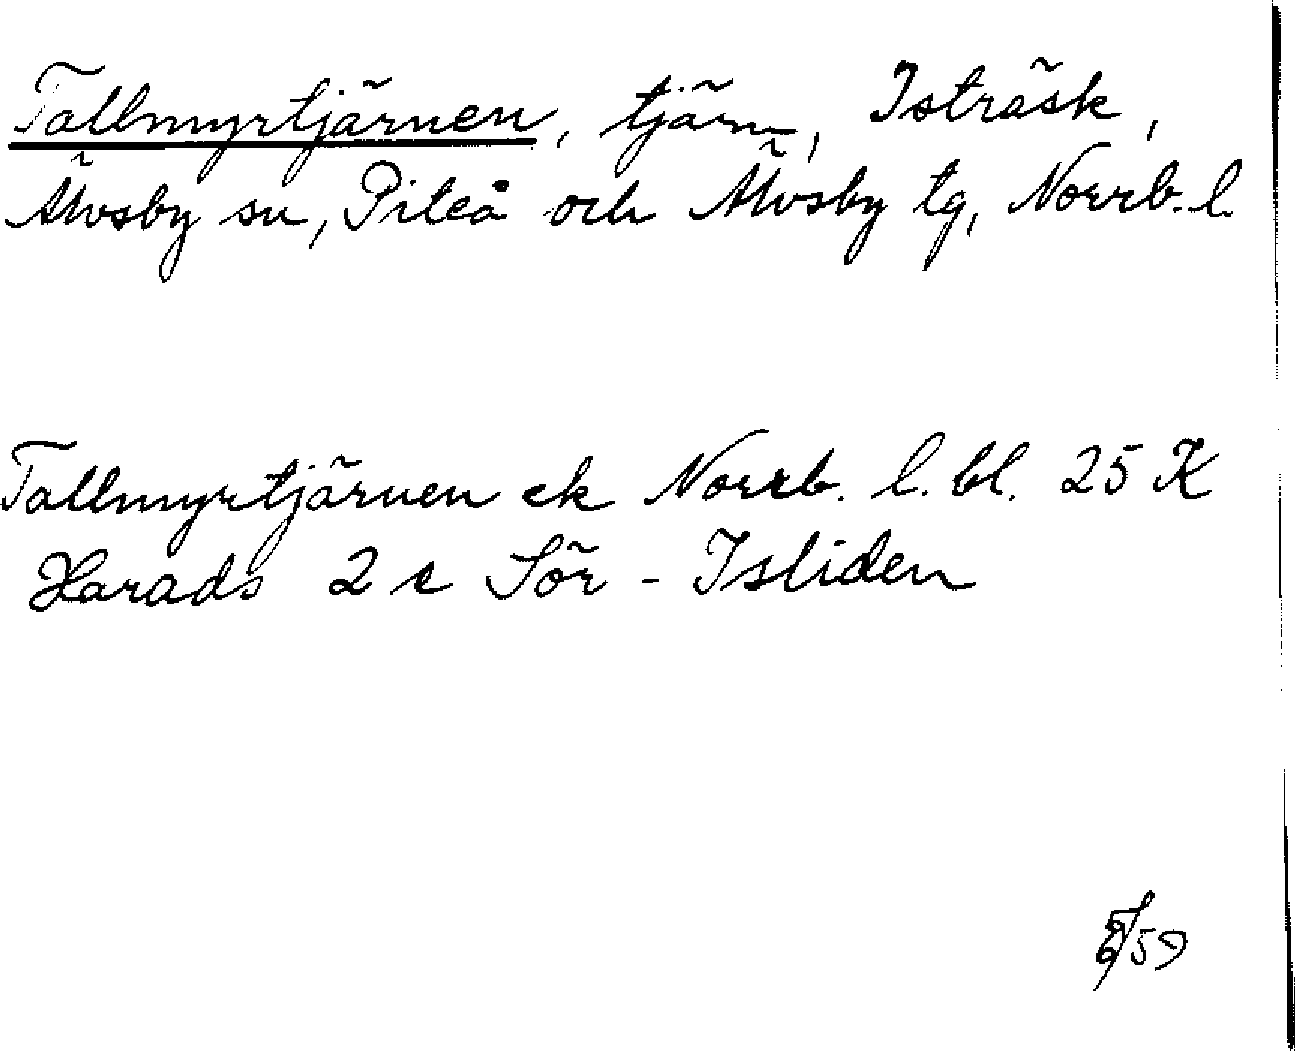 Tallmyrtjärnen, tjärn, Isträsk,
Älvsby sn, Piteå och Älvsby tg, Norrb. l.
Tallmyrtjärnen ek Norrb. l. bl. 25 K
Harads 2 c Sör-Isliden
/59